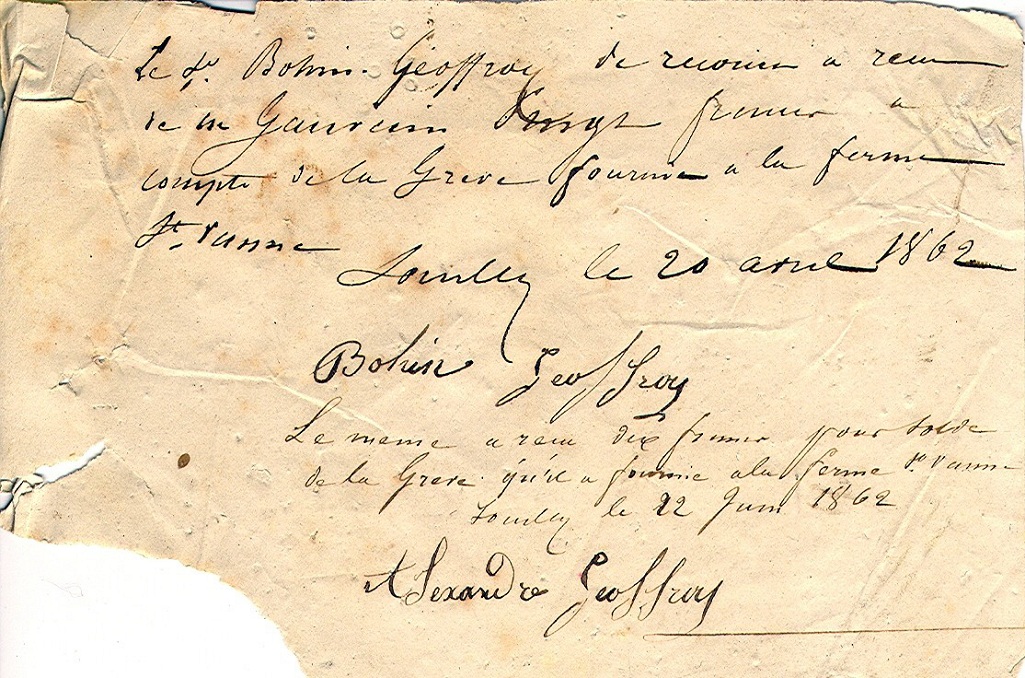 Le Sr. Bohin Geoffroy de a recu
de Mr Gauvain vingt francs a
compte de la Greve fournie a la ferme
St. Vanne
Souilly le 20 avril 1862
Bohin Geoffroy
Le meme a recu dix francs pour solde
de la Greve qu'il a fournie a la ferme St. Vanne
Souilly le 22 Juin 1862
Alexandre Geoffroy